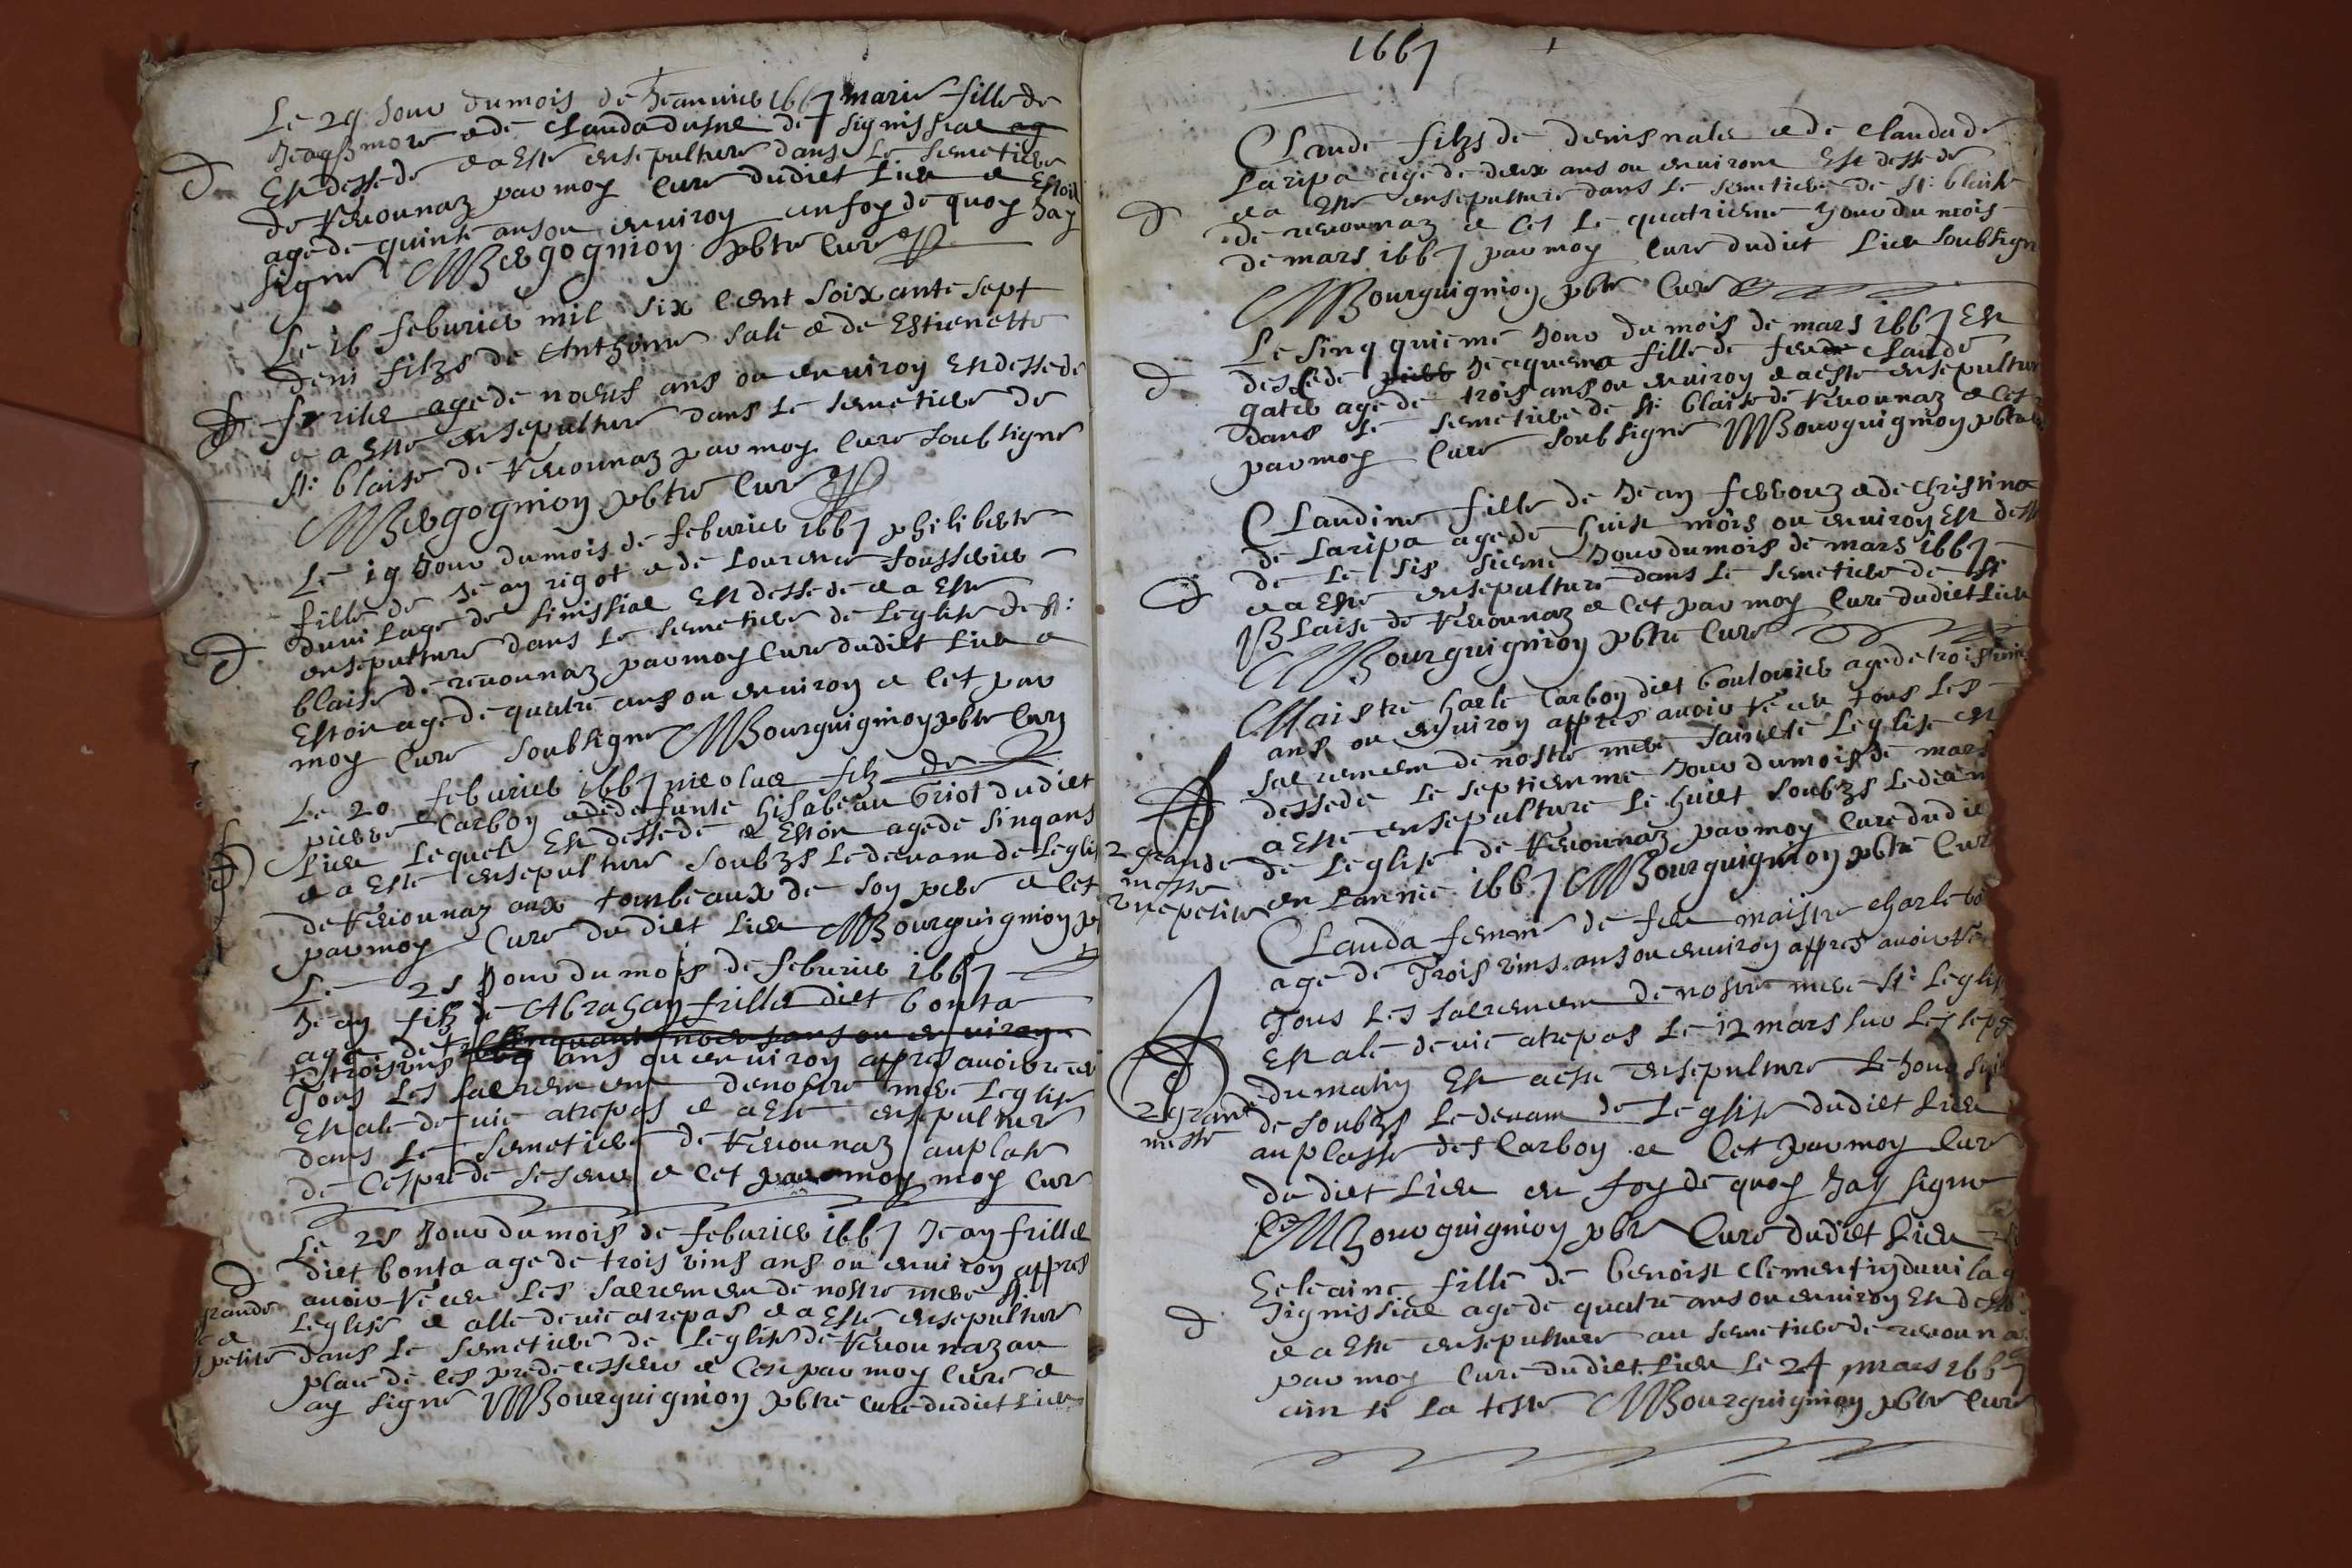 Le 29 Jour du mois de Jeanuier 1667 marie fille de
Jeaq more & de Clauda dusne de signissiae
Est dessede & a Este ensepulture dans Le semetiere
de Reuonnaz par moy Cure dudict Lieu & Estoit
age de quinse ans ou enuiron en foy de quoy Jay
signe MBergognion pbtre Cure
Le 16 feburier mil six Cent soixante sept
deni filzs de Anthoine sale & de Estienette
frike age de noeuf ans ou enuiron Est dessede
& a Este ensepulture dans Le semetiere de
St: blaise de Reuonnaz par moy Cure soubsigne
MBergognion pbtre Cure
Le 19 Jour du mois de feburier 1667 philiberte
fille de Jean rigot & de Lourence fousserier
du uilage de sinissiae Est dessede & a Este
ensepulture dans Le semetiere de Leglise de St:
blaise de reuonnaz par moy Cure dudict Lieu &
Estoit age de quatre ans ou enuiron & Cet par
moy Cure soubsigne MBourguignion pbtre Cure
Le 20 feburier 1667 nicolae filz de
pierre Carbon & de defunte hisabeau Griot dudict
Lieu Lequel Est dessede & Estoit age de sinq ans
& a Este ensepulture soubzs Le deuant de Leglis
de Reuonnaz aux tombeaux de son pere & Cet
par moy Cure dudict Lieu MBourguignion p
Le 21 Jour du mois de feburier 1667
Jean filz de Abrahan frillie dict bonta
age de cinquante noeuf ans ou enuiron
trois vins ans ou enuiron appres auoir receu
Tous Les sacrement de nostre mere Leglise
Est ale de uie a trepas & a Este ensepulture
dans Le semetiere de Reuonnaz au plase
de Ces prede sesseur & Cet par moy moy Cure
Le 21 Jour du mois de feburier 1667 Jean frillie
dict bonta age de trois vins ans ou enuiron appres
auoir Receu Les sacrement de nostre mere St:
grande Leglise & alle de uie a trepas & a Este ensepulture
& petite dans Le semetiere de Leglise de Reuonnaz au
place de ces prede cesseur & Cet par moy Cure &
ay signe MBourguignion pbtre Cure dudict Lieu
1667
Claude filzs de denis nale & de Clauda de
Laripa age de deux ans ou enuironn Est dessede
& a Este ensepulture dans Le semetiere de St: blaise
de reuonnaz & Cet Le quatrieme Jour du mois
de mars 1667 par moy Cure dudict Lieu soubsign
MBourguignion pbtre Cure
Le sinq quieme Jour du mois de mars 1667 Est
dessede Jeaquema fille de feu Claude
gater age de trois ans ou enuiron & a este ensepulture
dans Le semetiere de St: blaise de Reuonnaz & Cet
par moy Cure soubsigne MBourguignion pbtre
Claudine fille de Jean ferrouz & de Christina
de Laripa age de huist mois ou enuiron Est desse
de Le sis sieme Jour du mois de mars 1667
& a Este ensepulture dans Le semetiere de St
Blaise de Reuonnaz & Cet par moy Cure dudict Lieu
MBourguignion pbtre Cure
Maistre harle Carbon dict boulouier age de trois vins
ans ou enuiron appres auoir Receu tous Les
sacrement de nostre mere saincte Leglise est
dessede Le septieme Jour du mois de mars
a Este ensepulture Le huict soubzs Le deuan
2 grande de Leglise de Reuonnaz par moy Cure dudic
messe
vne petite en Lannee 1667 MBourguignion pbtre Cure
Clauda femme de feu maistre Charle bo
age de Trois vins ans ou enuiron appres auoir Re
Tous Les sacrement de nostre mere St: Leglise
Est ale de uie a trepas Le 12 mars sur Les sept
du matin Est a este ensepulture Le Jour sui
2 grande de soubzs Le deuant de Leglise dudict Lieu
messe au plasse des Carbon & Cet par moy Cure
du dict Lieu en foy de quoy Jay signe
MBourguignion pbtre Cure dudict Lieu
Eeleaine fille de benoist Clementin du uilag
signissiae age de quatre ans ou enuiron Est desse
& a Este ensepulture au semetiere de reuonna
par moy Cure dudict Lieu Le 24 mars 1667
ain si La teste MBourguignion pbtre Cure